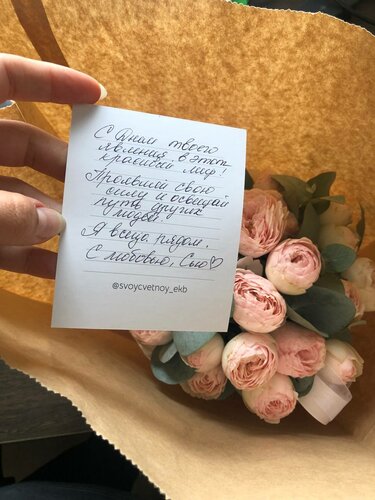 С Днём твоего
явления в этот
красивый мир!
Проявляй свою
силу и освещай
путь других
людей.
Я всегда рядом.
С любовью,
@svoycvetnoy_ekb